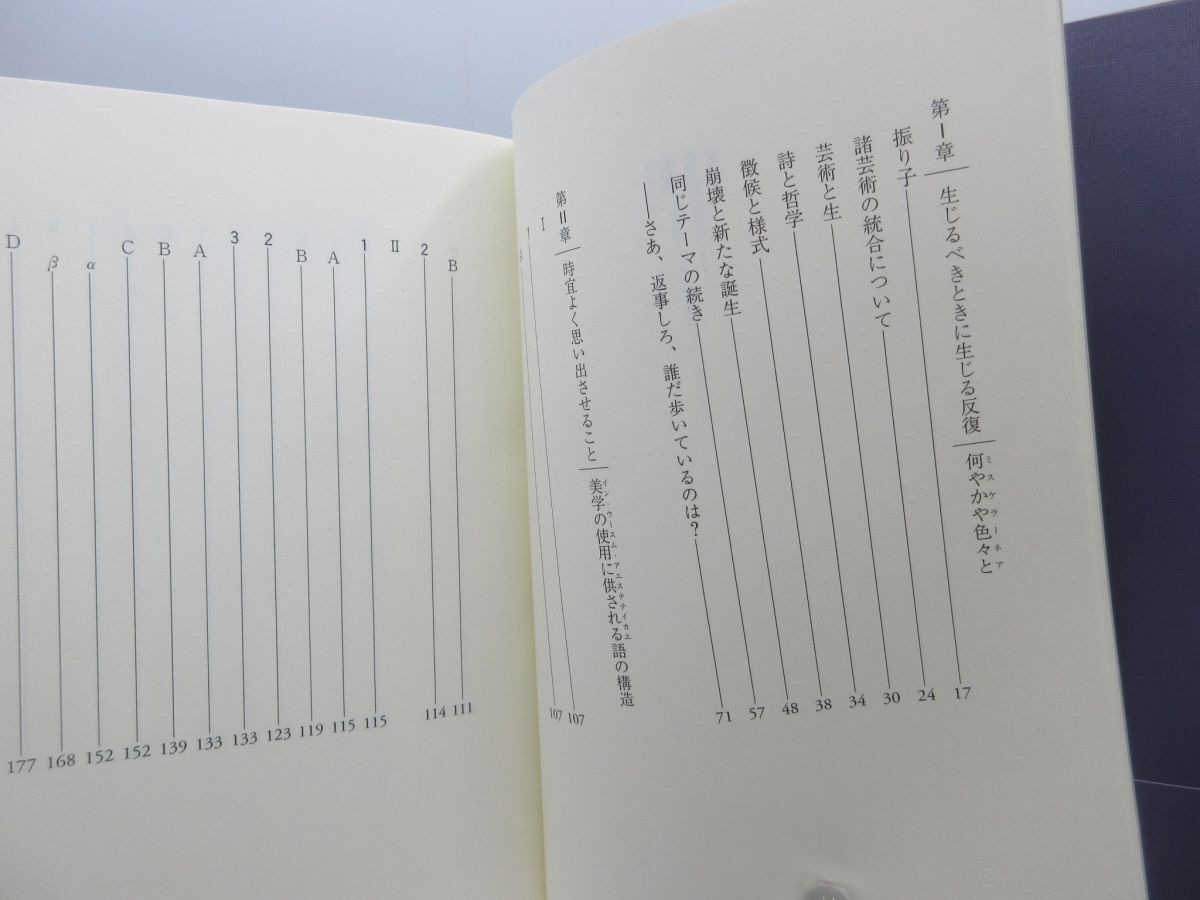 第Ⅰ章―生じるべきときに生じる反復―何やかや色々と
ミスケラーネア
振り子 17
諸芸術の統合について 24
芸術と生 30
詩と哲学 34
徴候と様式 38
崩壊と新たな誕生 48
同じテーマの続き 57
――さあ、返事しろ、誰だ歩いているのは? 71
第Ⅱ章―時宜よく思い出させること―美学の使用に供される語の構造
イン・ウースム・アエステティカエ
Ⅰ
1 107
107
B 111
2 114
Ⅱ
1 115
A 115
B 119
2 123
3 133
A 133
B 139
C 152
α 152
β 168
D 177